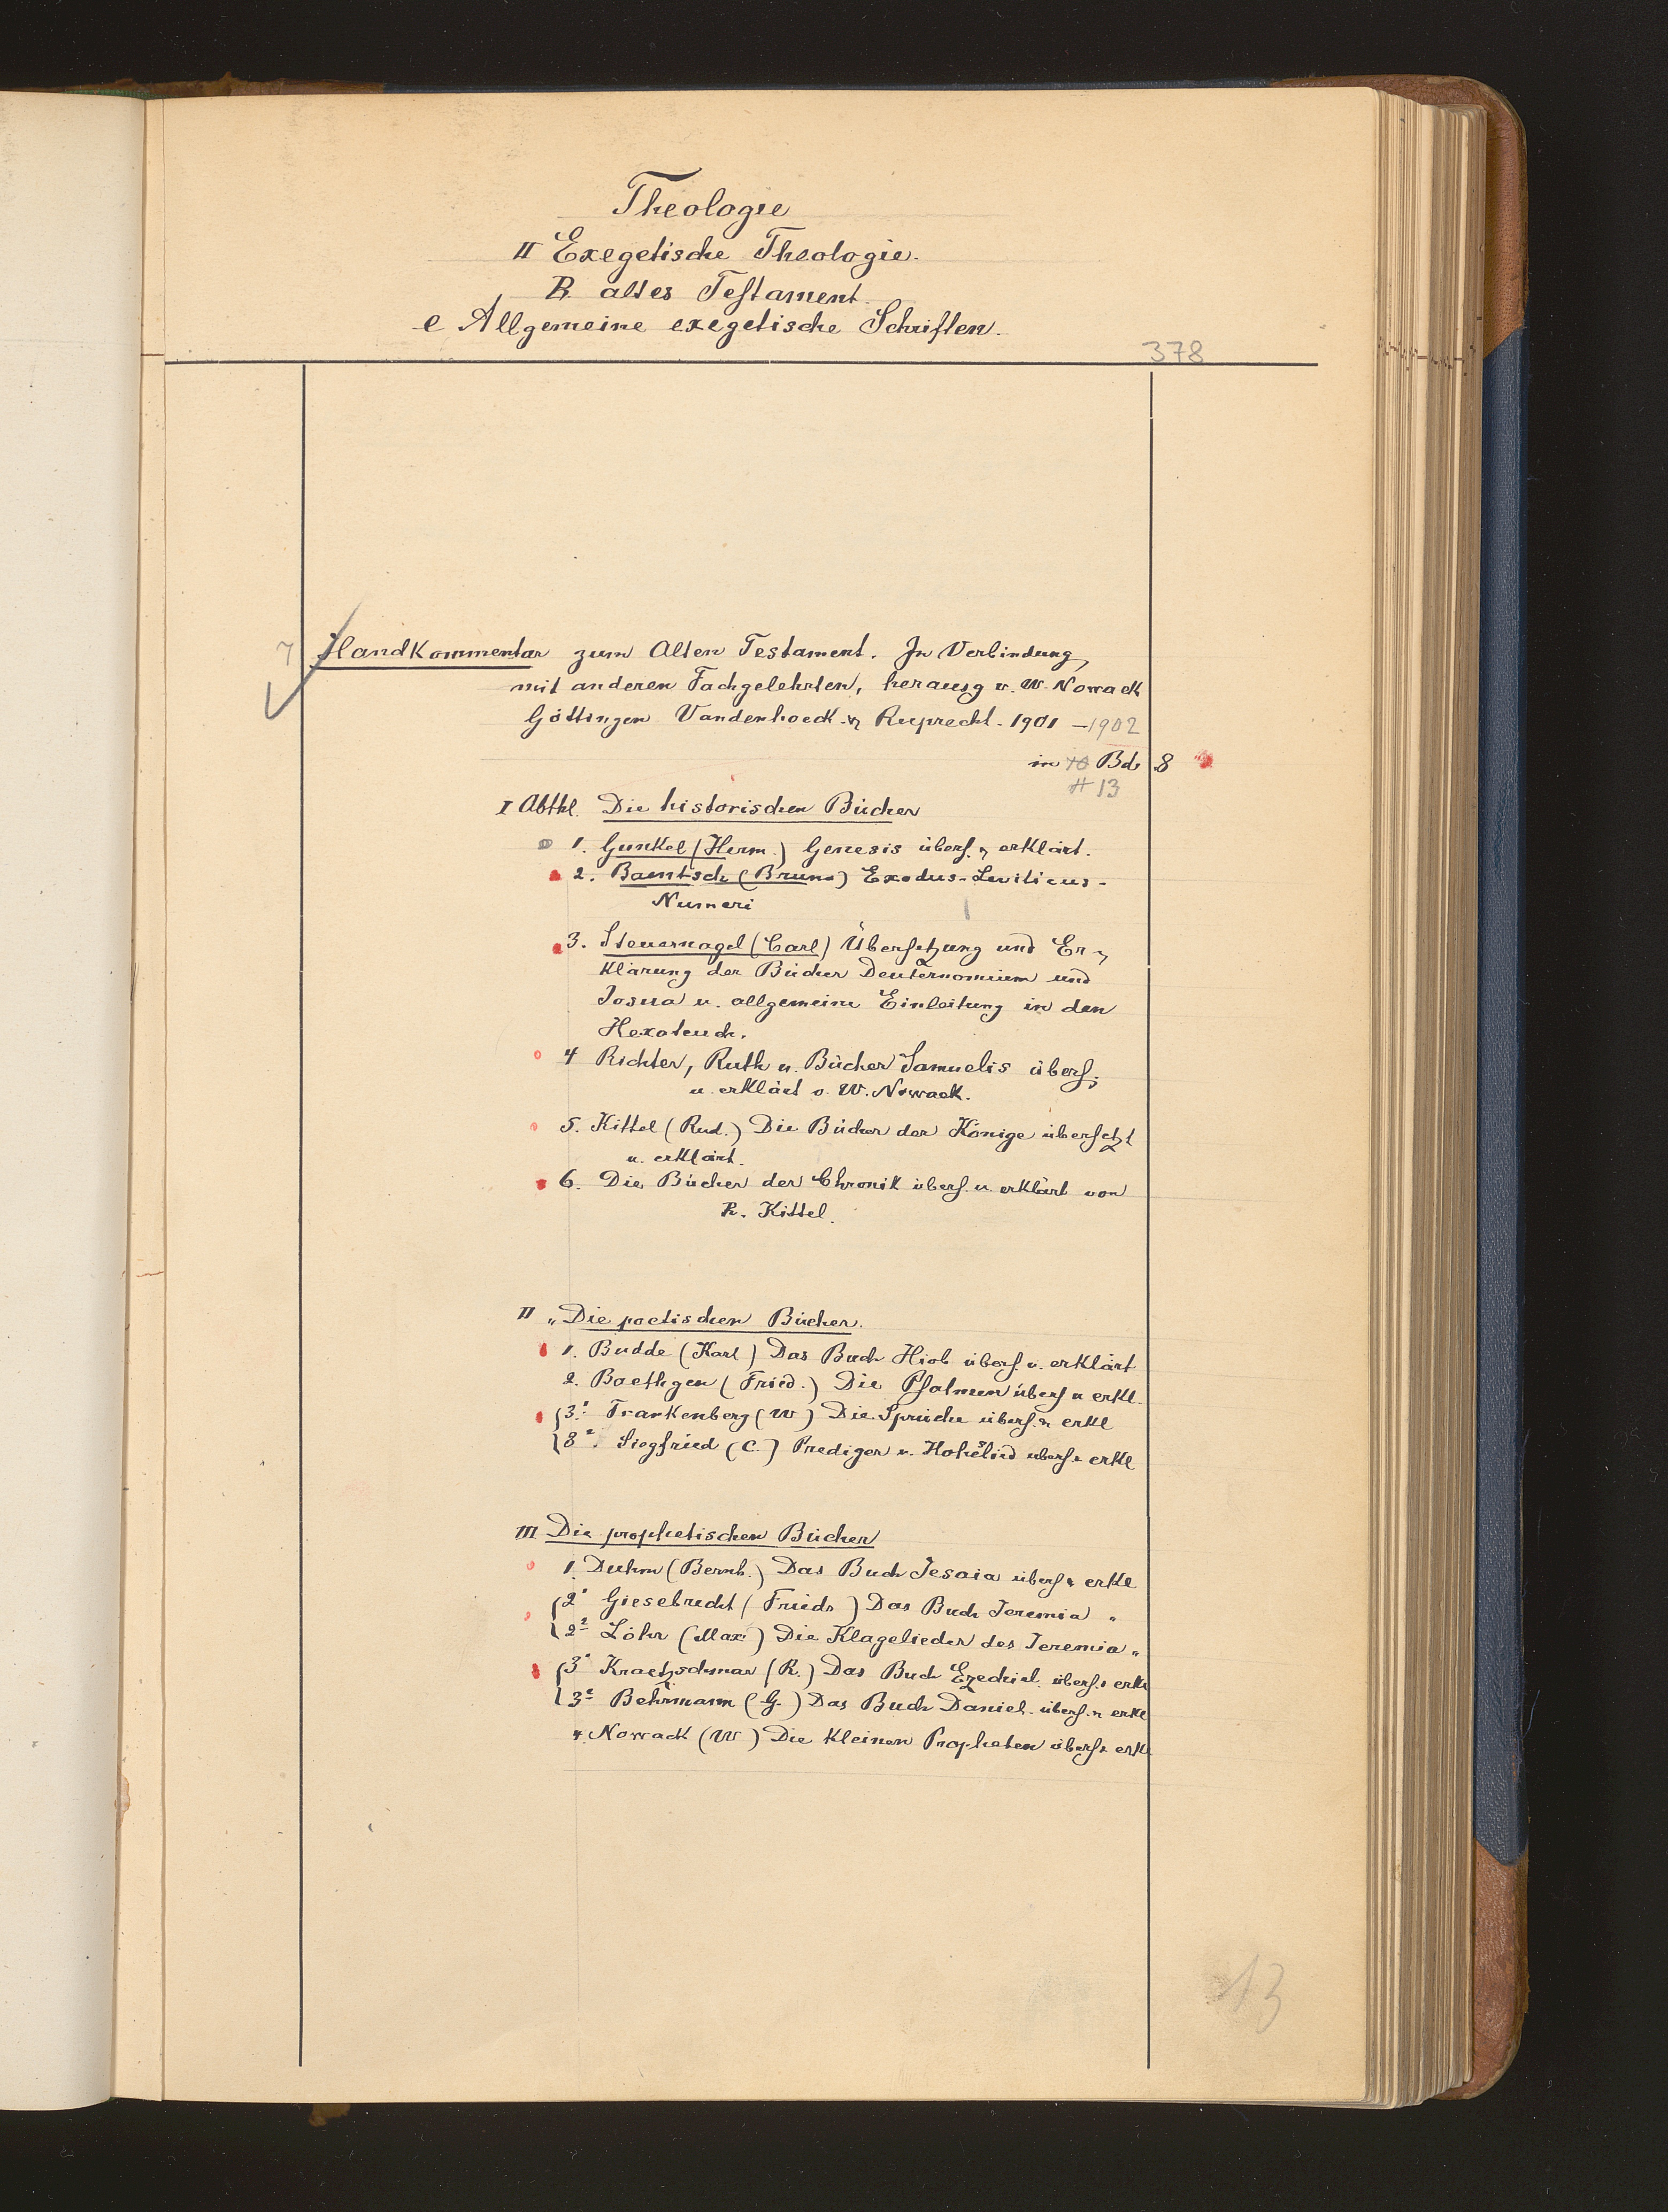 Theologie
II Exegetische Theologie.
B. altes Testament.
e Allgemeine exegetische Schriften.
378
7 Handkommentar zum Alten Testament. In Verbindung
mit anderen Fachgelehrten, herausg v. W. Nowack
Göttingen Vandenhoeck u. Ruprecht. 1901 - 1902
in 10 Bd 8
13
I Abthl. Die historischen Bücher
1. Gunkel (Herm.) Genesis übers. u. erklärt.
2. Baentsch (Bruno) Exodus-Leviticus-
Numeri
3. Steuernagel (Carl) Übersetzung und Er-
klärung der Bücher Deuternomium und
Josua u. allgemeine Einleitung in den
Hexateuch.
4 Richter, Ruth u. Bücher Samuelis übers.
u. erklärt v. W. Nowack.
5. Kittel (Rud.) Die Bücher der Könige übersetzt
u. erklärt.
6. Die Bücher der Chronik übers. u. erklärt von
R. Kittel.
II „ Die poetischen Bücher.
1. Budde (Karl) Das Buch Hiob übers. u. erklärt
2. Baethgen (Fried.) Die Psalmen übers u erkl.
3¹ Frankenberg (W) Die Sprüche übers. u erkl
3². Siegfried (C.) Prediger u. Hoheslied übers. u erkl
III Die prophetischen Bücher
1. Duhm (Bernh.) Das Buch Jesaia übers u erkl
2¹ Giesebrecht (Friedr) Das Buch Jeremia "
2² Löhr (Max) Die Klagelieder des Jeremia "
3¹ Kraetzschmar (R.) Das Buch Ezechiel übers. u erkl
3² Behrmann (G.) Das Buch Daniel. übers. u erkl
4. Nowack (W) Die kleinen Propheten übers u erkl
13